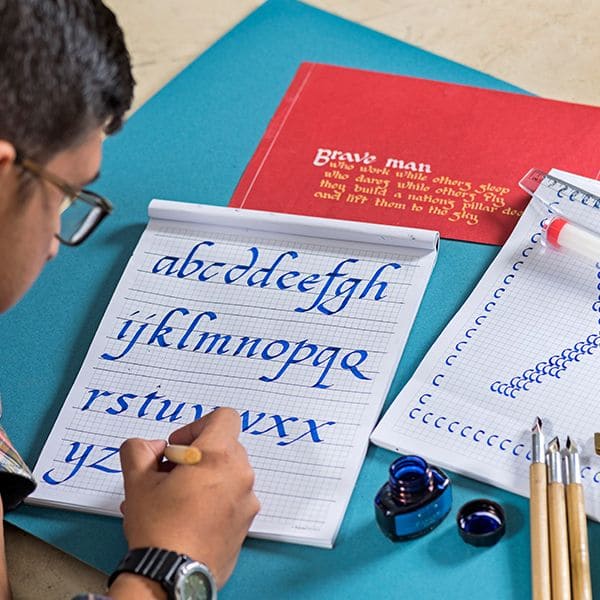 Brave man
who work while others sleep
who dares while others fly
they build a nations pillar
and lift them to the sky
abcddeefgh
ijklmnopqq
rstuvwxx
yz